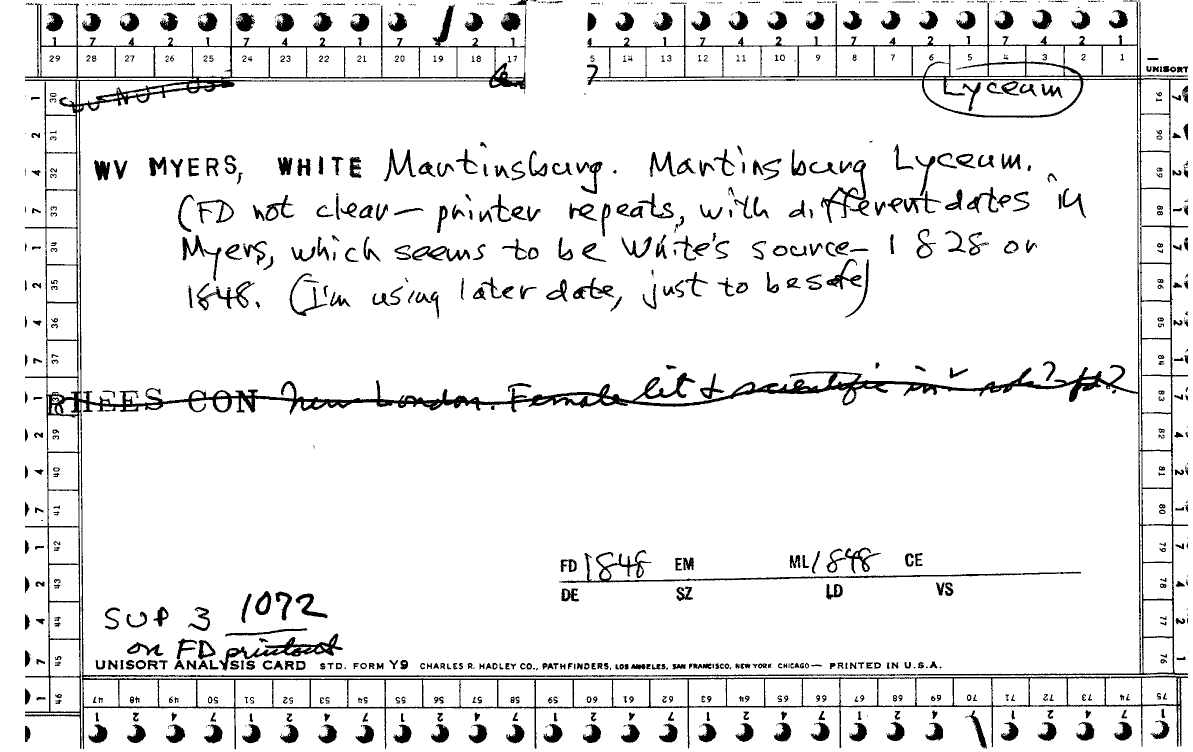 1 7 4 2 1 7 4 2 1 7 4 2 1 4 2 1 7 4 2 1 7 4 2 1
29 28 27 26 25 24 23 22 21 20 19 18 17 5 14 13 12 11 10 9 8 7 6 5 4 3 2 1
UNISORT
DO NOT USE
Lyceum
WV MYERS, WHITE Martinsburg. Martinsburg Lyceum.
(FD not clear — printer repeats, with different dates in
Myers, which seems to be White's source — 1828 or
1848. (I'm using later date, just to be safe)
RHEES CON New London. Female lit & scientific in
FD 1848 EM ML 1848 CE
DE SZ LD VS
SUP 3 1072
on FD printout
UNISORT ANALYSIS CARD STD. FORM Y9 CHARLES R. HADLEY CO., PATHFINDERS, LOS ANGELES, SAN FRANCISCO, NEW YORK CHICAGO — PRINTED IN U.S.A.
30 31 32 33 34 35 36 37 39 40 41 42 43 44 45 46
91 90 89 88 87 86 85 84 83 82 81 80 79 78 77 76
47 48 49 50 51 52 53 54 55 56 57 58 59 60 61 62 63 64 65 66 67 68 69 70 71 72 73 74 75
1 2 4 7 1 2 4 7 1 2 4 7 1 2 4 7 1 2 4 7 1 2 4 7 1 2 4 7 1